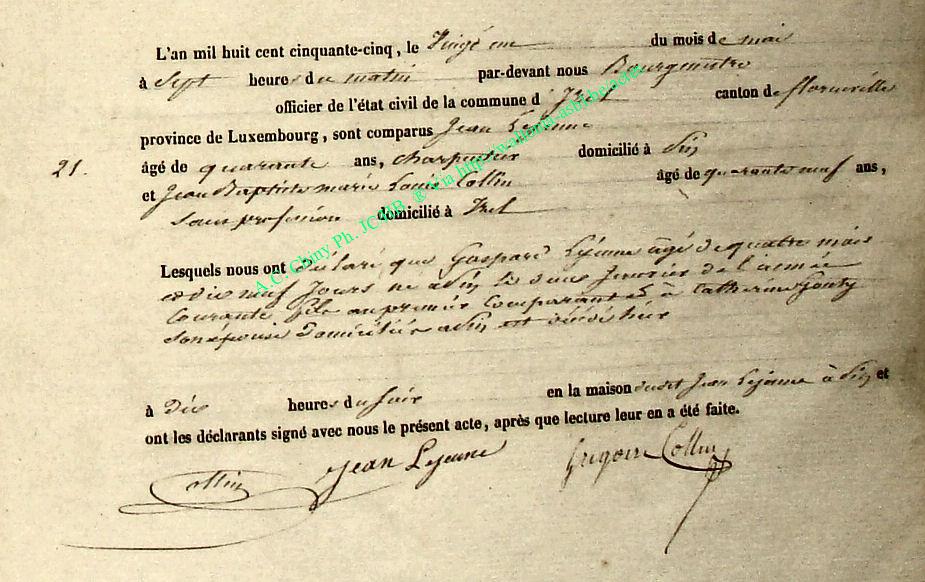 L'an mil huit cent cinquante-cinq, le Vingt un du mois de mai
à Sept heures du matin par-devant nous Bourgmestre
officier de l'état civil de la commune d' Izel canton de florenville
province de Luxembourg, sont comparus Jean Lejeune
21. âgé de quarante ans, charpentier domicilié à Pin
et Jean Baptiste marie Louis Collin âgé de quarante neuf ans,
Sans profession domicilié à Izel
Lesquels nous ont déclaré que Gaspard Lejeune âgé de quatre mois
et dix neuf Jours né à Pin le deux Janvier de l'année
Courante fils au premier Comparant & à Catherine Gouty
son épouse Domiciliée à Pin est décédé hier
à Dix heures du soir en la maison dudit Jean Lejeune à Pin et
ont les déclarants signé avec nous le présent acte, après que lecture leur en a été faite.
Collin Jean Lejeune Grégoire Collin
A.C. Chiny Ph. JC-BB ® Via http://wallonia-asbl.be/actes